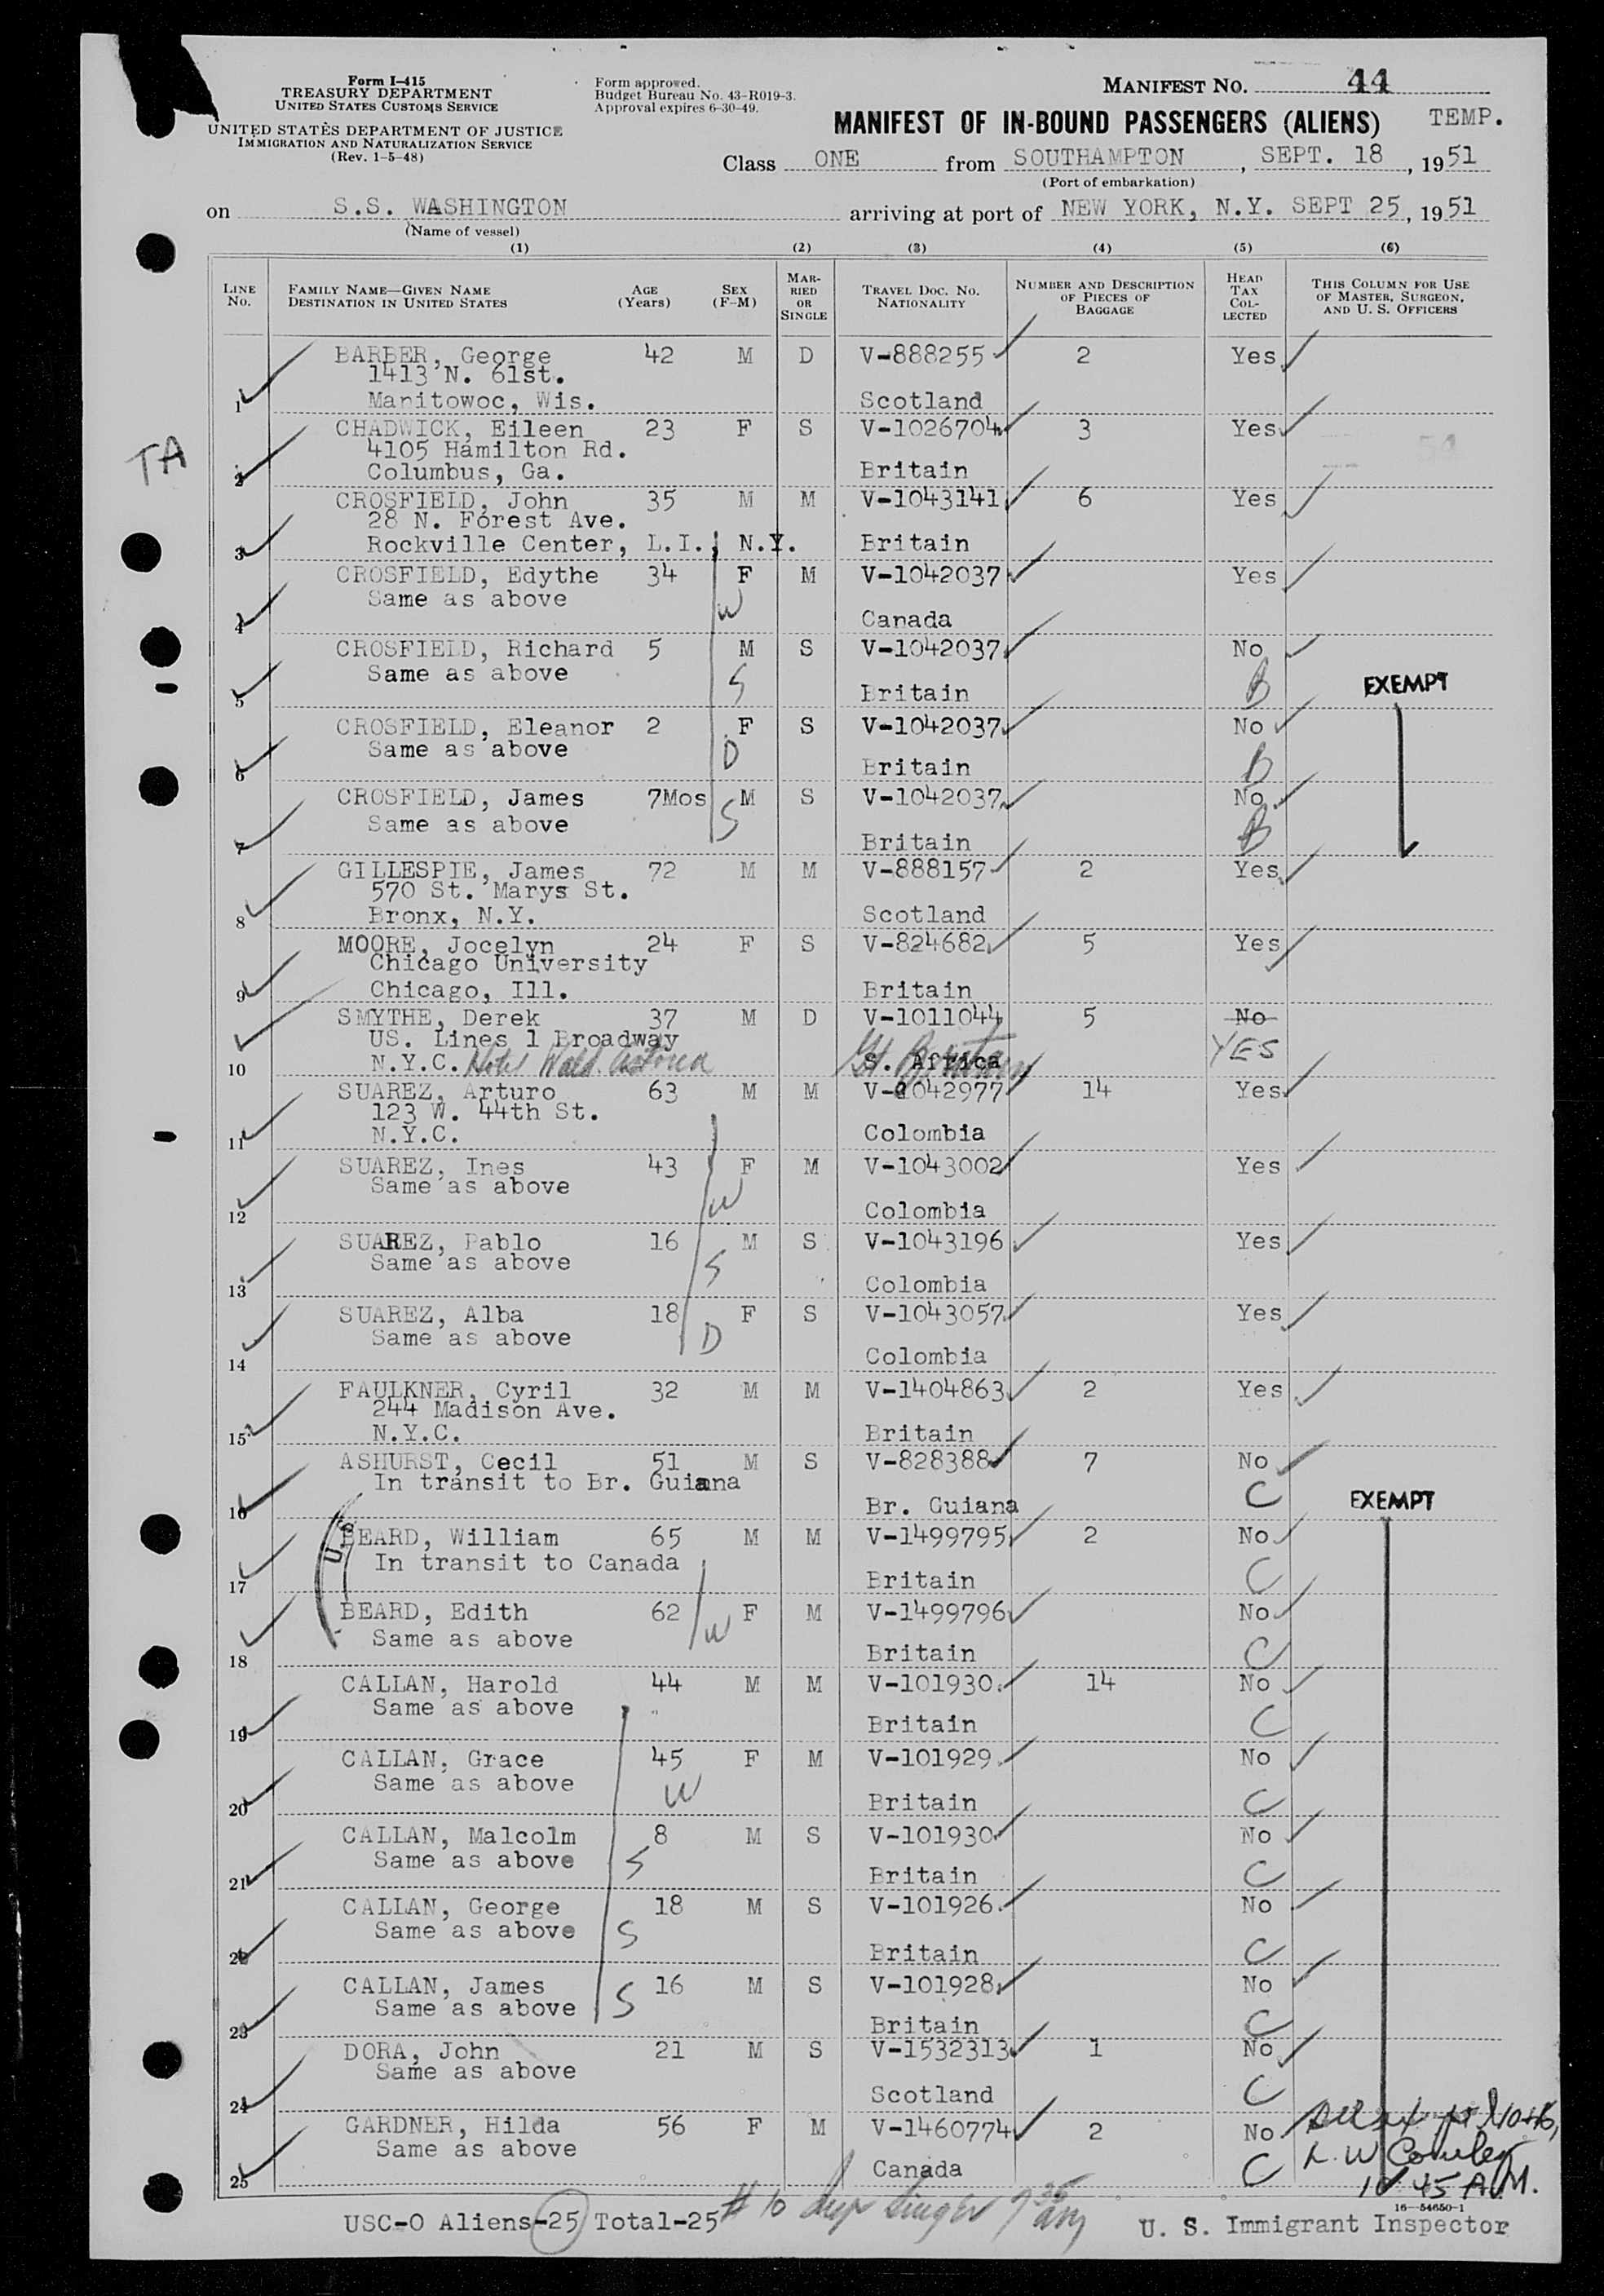 Form I-415
TREASURY DEPARTMENT
UNITED STATES CUSTOMS SERVICE
UNITED STATES DEPARTMENT OF JUSTICE
IMMIGRATION AND NATURALIZATION SERVICE
(Rev. 1-5-48)
Form approved.
Budget Bureau No. 43-R019-3.
Approval expires 6-30-49.
MANIFEST NO. 44
MANIFEST OF IN-BOUND PASSENGERS (ALIENS) TEMP.
Class ONE from SOUTHAMPTON, SEPT. 18, 1951
(Port of embarkation)
on S.S. WASHINGTON arriving at port of NEW YORK, N.Y. SEPT 25, 1951
(Name of vessel)
(1) (2) (3) (4) (5) (6)
LINE NO.
FAMILY NAME—GIVEN NAME
DESTINATION IN UNITED STATES
AGE (Years)
SEX (F-M)
MARRIED OR SINGLE
TRAVEL DOC. NO.
NATIONALITY
NUMBER AND DESCRIPTION OF PIECES OF BAGGAGE
HEAD TAX COLLECTED
THIS COLUMN FOR USE OF MASTER, SURGEON, AND U. S. OFFICERS
BARBER, George 42 M D V-888255 2 Yes
1413 N. 61st.
1 Manitowoc, Wis. Scotland
CHADWICK, Eileen 23 F S V-1026704 3 Yes
4105 Hamilton Rd.
TA
2 Columbus, Ga. Britain
CROSFIELD, John 35 M M V-1043141 6 Yes
28 N. Forest Ave.
3 Rockville Center, L.I., N.Y. Britain
CROSFIELD, Edythe 34 F M V-1042037 Yes
Same as above W
4 Canada
CROSFIELD, Richard 5 M S V-1042037 No
Same as above S
5 Britain B EXEMPT
CROSFIELD, Eleanor 2 F S V-1042037 No
Same as above D
6 Britain B
CROSFIELD, James 7Mos M S V-1042037 No
Same as above S
7 Britain B
GILLESPIE, James 72 M M V-888157 2 Yes
570 St. Marys St.
8 Bronx, N.Y. Scotland
MOORE, Jocelyn 24 F S V-824682 5 Yes
Chicago University
9 Chicago, Ill. Britain
SMYTHE, Derek 37 M D V-1011044 5 No
US. Lines 1 Broadway YES
10 N.Y.C. Hotel Wald. Astoria S. Africa Gt. Britain
SUAREZ, Arturo 63 M M V-1042977 14 Yes
123 W. 44th St.
11 N.Y.C. Colombia
SUAREZ, Ines 43 F M V-1043002 Yes
Same as above W
12 Colombia
SUAREZ, Pablo 16 M S V-1043196 Yes
Same as above S
13 Colombia
SUAREZ, Alba 18 F S V-1043057 Yes
Same as above D
14 Colombia
FAULKNER, Cyril 32 M M V-1404863 2 Yes
244 Madison Ave.
15 N.Y.C. Britain
ASHURST, Cecil 51 M S V-828388 7 No
In transit to Br. Guiana
16 Br. Guiana C EXEMPT
BEARD, William 65 M M V-1499795 2 No
In transit to Canada
17 Britain C
BEARD, Edith 62 F M V-1499796 No
Same as above W
18 Britain C
CALLAN, Harold 44 M M V-101930 14 No
Same as above
19 Britain C
CALLAN, Grace 45 F M V-101929 No
Same as above W
20 Britain C
CALLAN, Malcolm 8 M S V-101930 No
Same as above S
21 Britain C
CALLAN, George 18 M S V-101926 No
Same as above S
22 Britain C
CALLAN, James 16 M S V-101928 No
Same as above S
23 Britain C
DORA, John 21 M S V-1532313 1 No
Same as above
24 Scotland C
GARDNER, Hilda 56 F M V-1460774 2 No
Same as above
25 Canada C
10 45 A.M.
16—54650-1
USC-0 Aliens-25 Total-25 # 10
U. S. Immigrant Inspector